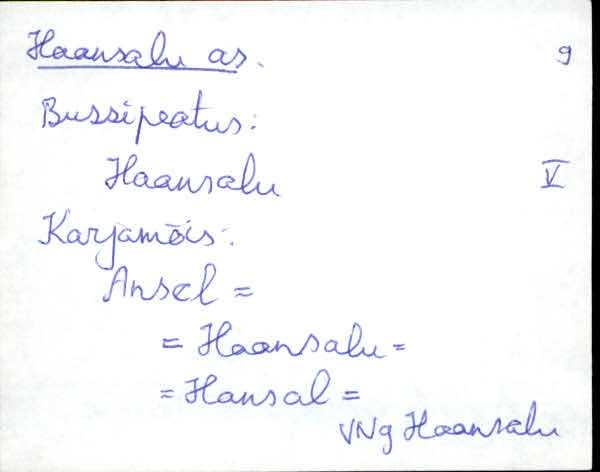 Haansalu as. 9
Bussipeatus:
Haansalu V
Karjamõis:
Ansel =
= Haansalu =
= Hansal =
VNg Haansalu